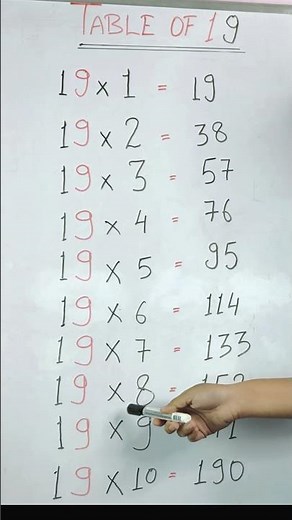 TABLE OF 19
19 x 1 = 19
19 x 2 = 38
19 x 3 = 57
19 x 4 = 76
19 x 5 = 95
19 x 6 = 114
19 x 7 = 133
19 x 8 =
19 x 9
19 x 10 = 190